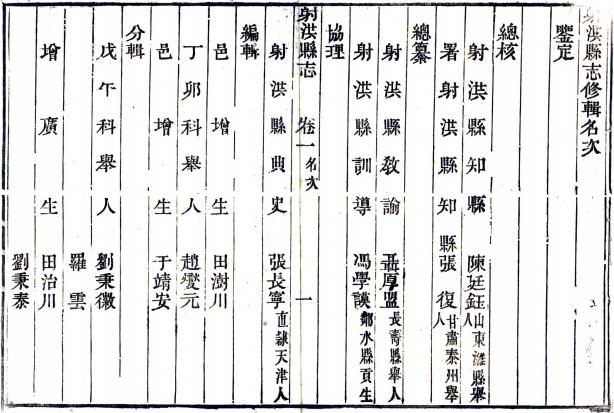 射洪縣志修輯名次
鑒定
總核
射洪縣知縣 陳廷鈺 山東濰縣舉人
署射洪縣知縣 張復 甘肅泰州舉人
總纂
射洪縣教諭 厚盟 長壽縣舉人
射洪縣訓導 馮學謨 鄰水縣貢生
協理
射洪縣志 卷一 名次 一
射洪縣典史 張長寧 直隸天津人
編輯
邑增生 田澍川
丁卯科舉人 趙燮元
邑增生 于靖安
分輯
戊午科舉人 劉秉徽
羅雲
增廣生 田治川
劉秉泰